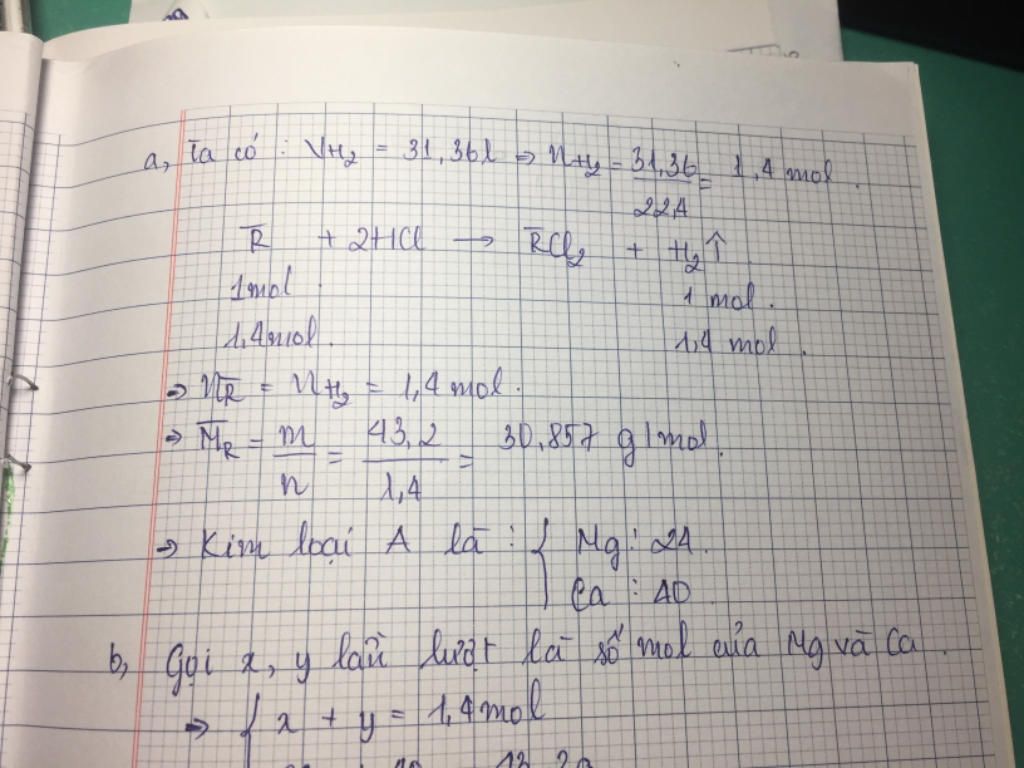 a, Ta có : VH₂ = 31,36l ⇒ nH₂ = 31,36/22,4 = 1,4 mol.
R̅ + 2HCl → R̅Cl₂ + H₂↑
1mol 1 mol.
1,4mol. 1,4 mol.
⇒ nR̅ = nH₂ = 1,4 mol.
⇒ M̅R = m/n = 43,2/1,4 = 30,857 g/mol.
⇒ Kim loại A là : { Mg : 24.
Ca : 40.
b, Gọi x, y lần lượt là số mol của Mg và Ca.
⇒ { x + y = 1,4mol